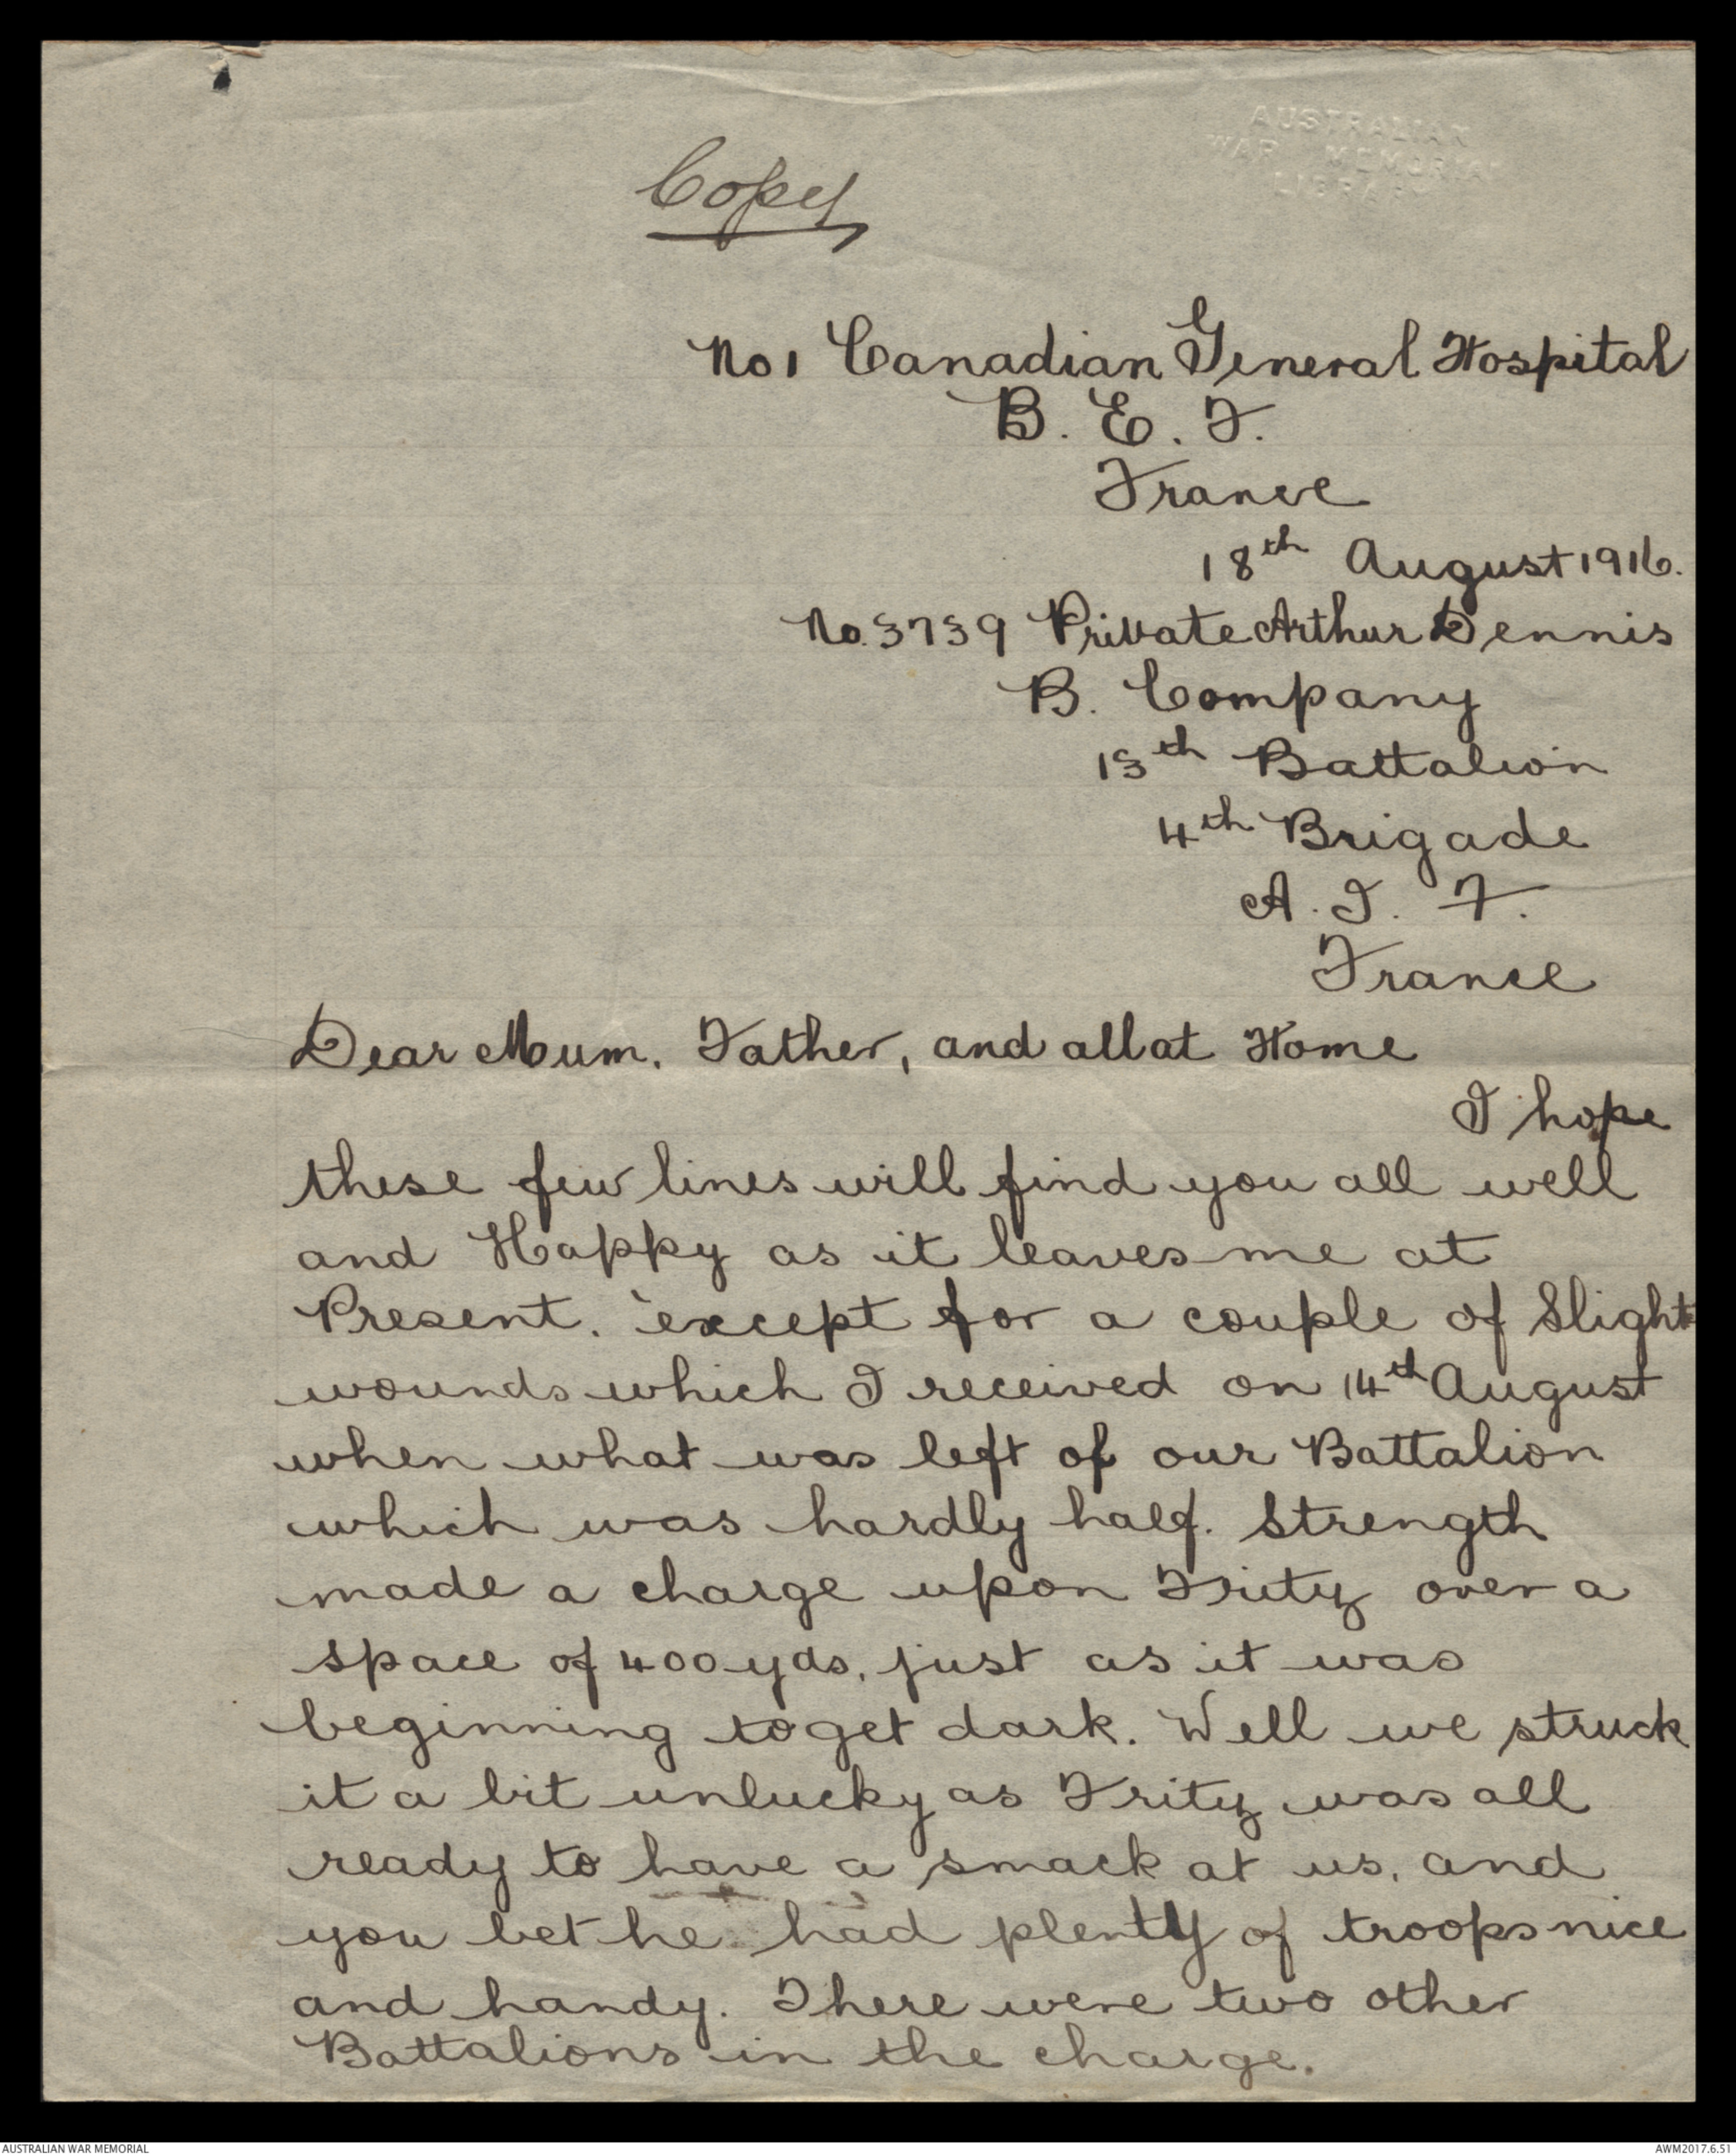 Copy
AUSTRALIAN
WAR MEMORIAL
LIBRARY
No 1 Canadian General Hospital
B. E. F.
France
18th August 1916.
No. 3739 Private Arthur Dennis
B. Company
13th Battalion
4th Brigade
A. I. F.
France
Dear Mum. Father, and all at Home
I hope
these few lines will find you all well
and Happy as it leaves me at
Present. except for a couple of Slight
wounds which I received on 14th August
when what was left of our Battalion
which was hardly half. Strength
made a charge upon Fritz over a
space of 400 yds, just as it was
beginning to get dark. Well we struck
it a bit unlucky as Fritz was all
ready to have a smack at us, and
you bet he had plenty of troops nice
and handy. There were two other
Battalions in the charge.
AUSTRALIAN WAR MEMORIAL
AWM2017.6.51